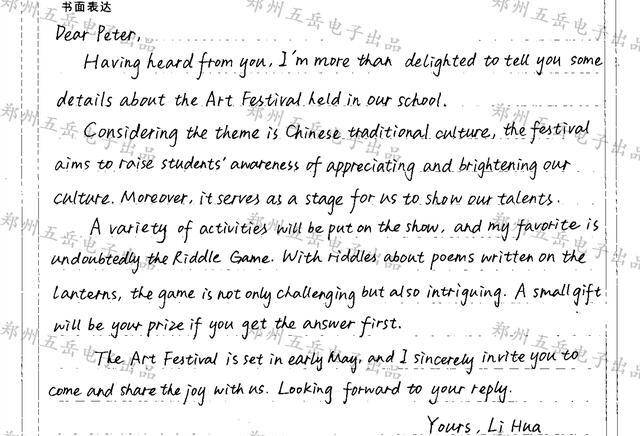 书面表达
Dear Peter,
Having heard from you, I'm more than delighted to tell you some
details about the Art Festival held in our school.
Considering the theme is Chinese traditional culture, the festival
aims to raise students' awareness of appreciating and brightening our
culture. Moreover, it serves as a stage for us to show our talents.
A variety of activities will be put on the show, and my favorite is
undoubtedly the Riddle Game. With riddles about poems written on the
lanterns, the game is not only challenging but also intriguing. A small gift
will be your prize if you get the answer first.
The Art Festival is set in early May, and I sincerely invite you to
come and share the joy with us. Looking forward to your reply.
Yours, Li Hua
郑州五岳电子出品
郑州五岳电子出品
郑州五岳电子出品
郑州五岳电子出品
郑州五岳电子出品
郑州五岳电子出品